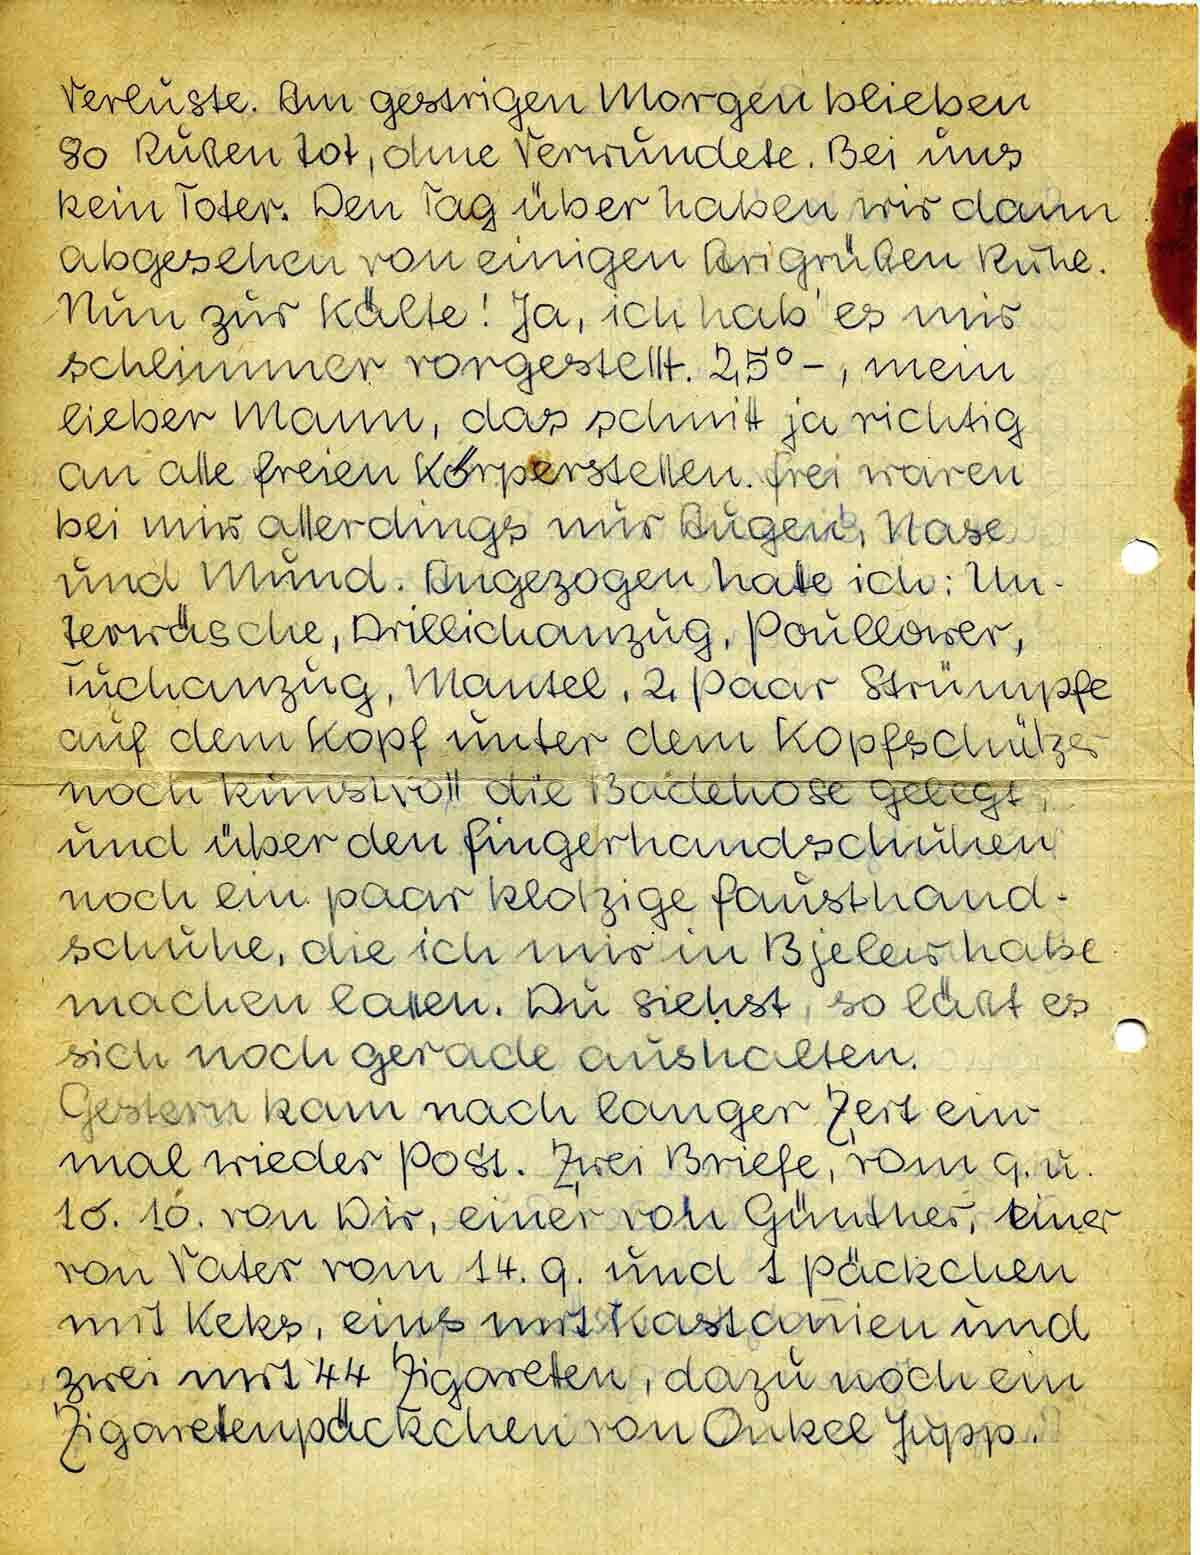 Verluste. Am gestrigen Morgen blieben
80 Rußen tot, ohne Verwundete. Bei uns
kein Toter. Den Tag über haben wir dann
abgesehen von einigen Arigrüßen Ruhe.
Nun zur Kälte! Ja, ich hab' es mir
schlimmer vorgestellt. 25° –, mein
lieber Mann, das schnitt ja richtig
an alle freien Körperstellen. Frei waren
bei mir allerdings nur Augen, Nase
und Mund. Angezogen hatte ich: Un-
terwäsche, Drillichanzug, Poullower,
Tuchanzug, Mantel, 2 Paar Strümpfe
auf dem Kopf unter dem Kopfschützer
noch kunstvoll die Badehose gelegt,
und über den Fingerhandschuhen
noch ein paar klotzige Fausthand-
schuhe, die ich mir in Bjelew habe
machen lassen. Du siehst, so läßt es
sich noch gerade aushalten.
Gestern kam nach langer Zeit ein-
mal wieder Post. Zwei Briefe, vom 9. u.
10. 10. von Dir, einer von Günther, einer
von Vater vom 14. 9. und 1 Päckchen
mit Keks, eins mit Kastanien und
zwei mit 44 Zigaretten, dazu noch ein
Zigarettenpäckchen von Onkel Jupp.